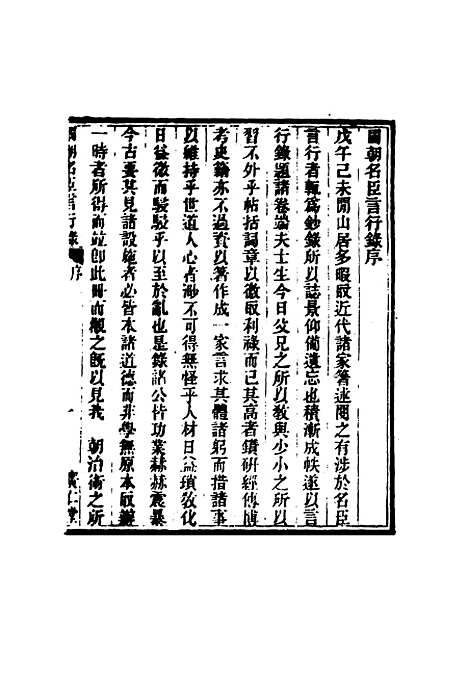 國朝名臣言行錄序
戊午己未閒山居多暇取近代諸家箸述閱之有涉於名臣
言行者輒爲鈔錄所以誌景仰備遺忘也積漸成帙遂以言
行錄題諸卷端夫士生今日父兄之所以敎與少小之所以
習不外乎帖括詞章以徼取利祿而已其高者鑽硏經傳博
考史籍亦不過資以箸作成一家言求其體諸躬而措諸事
以維持乎世道人心者渺不可得無怪乎人材日益瑣敎化
日益微而駸駸乎以至於亂也是錄諸公皆功業赫赫震暴
今古要其見諸設施者必皆本諸道德而非學無原本取辦
一時者所得而竝卽此冊而觀之旣以見我 朝治術之所
國朝名臣言行錄 序 一 廣仁堂